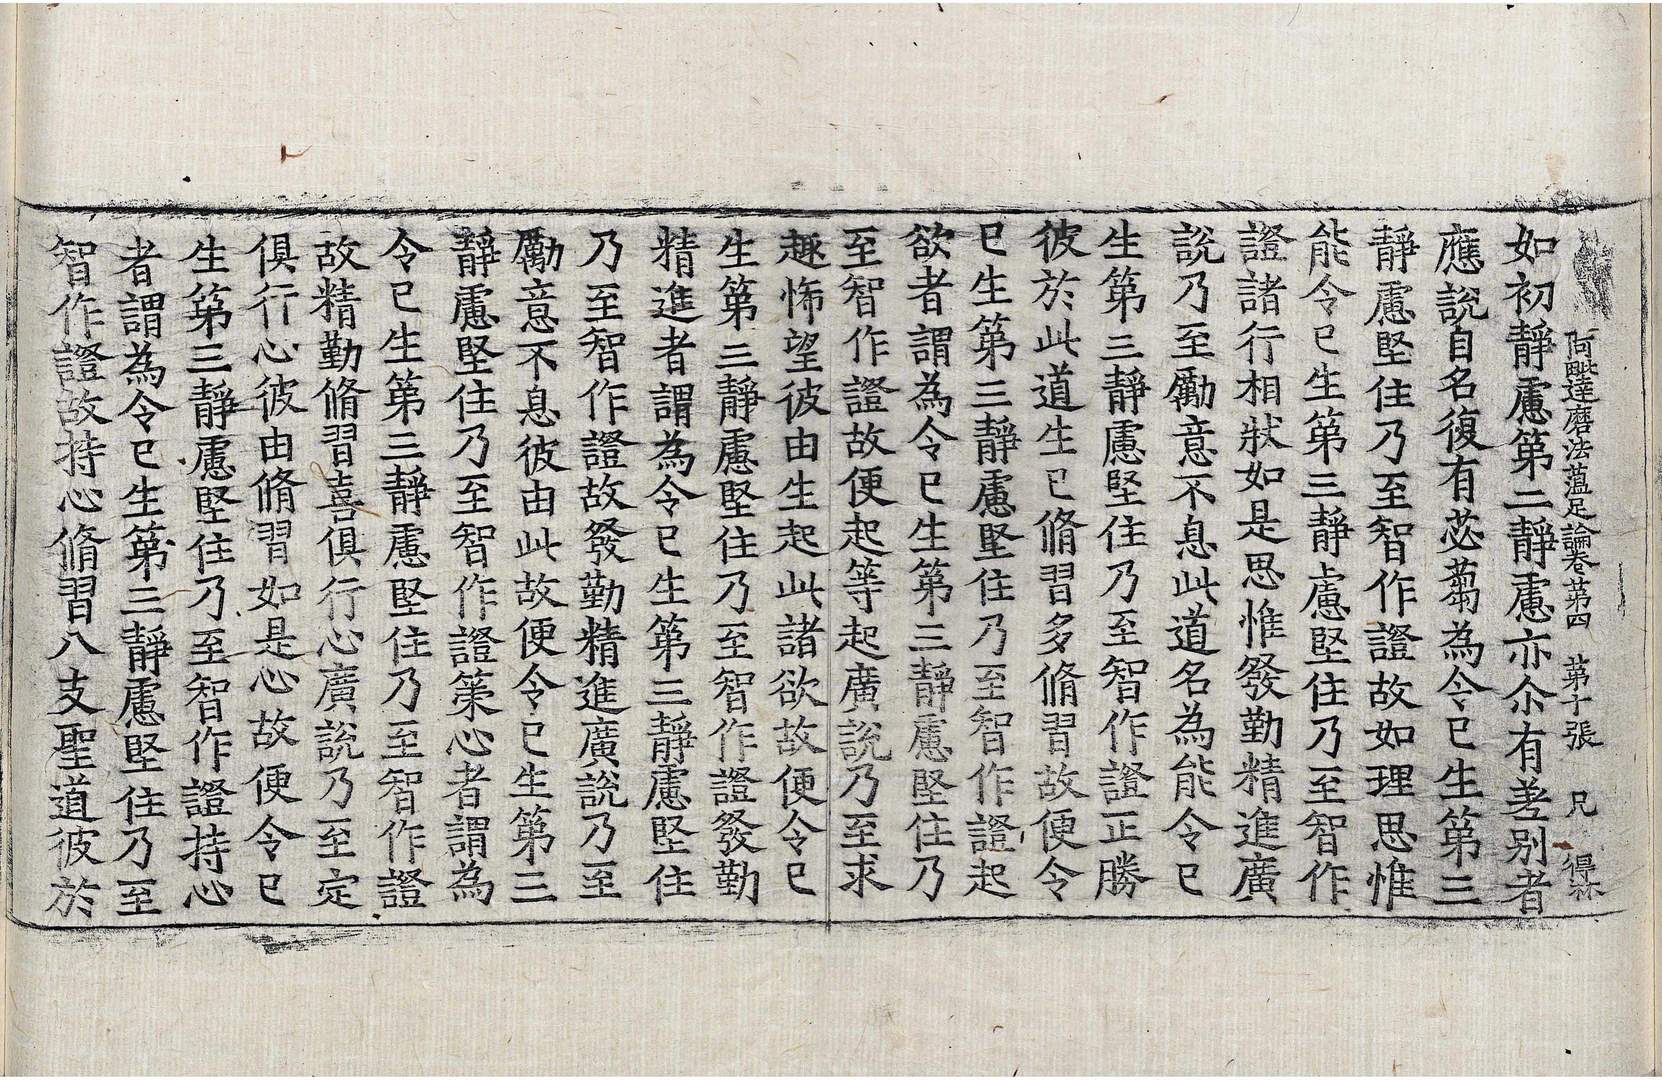 阿毗達磨法蘊足論卷第四 第十張 兄 得林
如初靜慮第二靜慮亦尒有差別者
應說自名復有苾蒭為令已生第三
靜慮堅住乃至智作證故如理思惟
能令已生第三靜慮堅住乃至智作
證諸行相狀如是思惟發勤精進廣
說乃至勵意不息此道名為能令已
生第三靜慮堅住乃至智作證正勝
彼於此道生已脩習多脩習故便令
已生第三靜慮堅住乃至智作證起
欲者謂為令已生第三靜慮堅住乃
至智作證故便起等起廣說乃至求
趣悕望彼由生起此諸欲故便令已
生第三靜慮堅住乃至智作證發勤
精進者謂為令已生第三靜慮堅住
乃至智作證故發勤精進廣說乃至
勵意不息彼由此故便令已生第三
靜慮堅住乃至智作證策心者謂為
令已生第三靜慮堅住乃至智作證
故精勤脩習喜俱行心廣說乃至定
俱行心彼由脩習如是心故便令已
生第三靜慮堅住乃至智作證持心
者謂為令已生第三靜慮堅住乃至
智作證故持心脩習八支聖道彼於